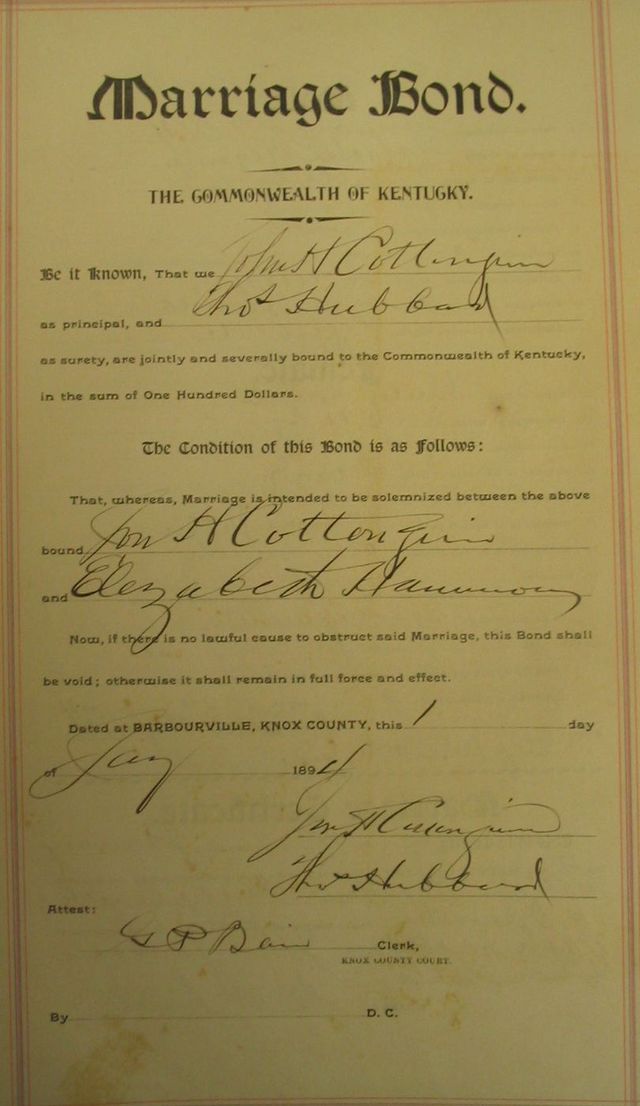 Marriage Bond.
THE COMMONWEALTH OF KENTUCKY.
Be it Known, That we John H Cottengim
Thos Hubbard
as principal, and
as surety, are jointly and severally bound to the Commonwealth of Kentucky,
in the sum of One Hundred Dollars.
The Condition of this Bond is as Follows:
That, whereas, Marriage is intended to be solemnized between the above
bound Jon H Cottongim
and Elezabeth Hammons
Now, if there is no lawful cause to obstruct said Marriage, this Bond shall
be void; otherwise it shall remain in full force and effect.
Dated at BARBOURVILLE, KNOX COUNTY, this 1 day
of Jany 1894
Jon H
Thos Hubbard
Attest:
G P Bain Clerk,
KNOX COUNTY COURT.
By D. C.